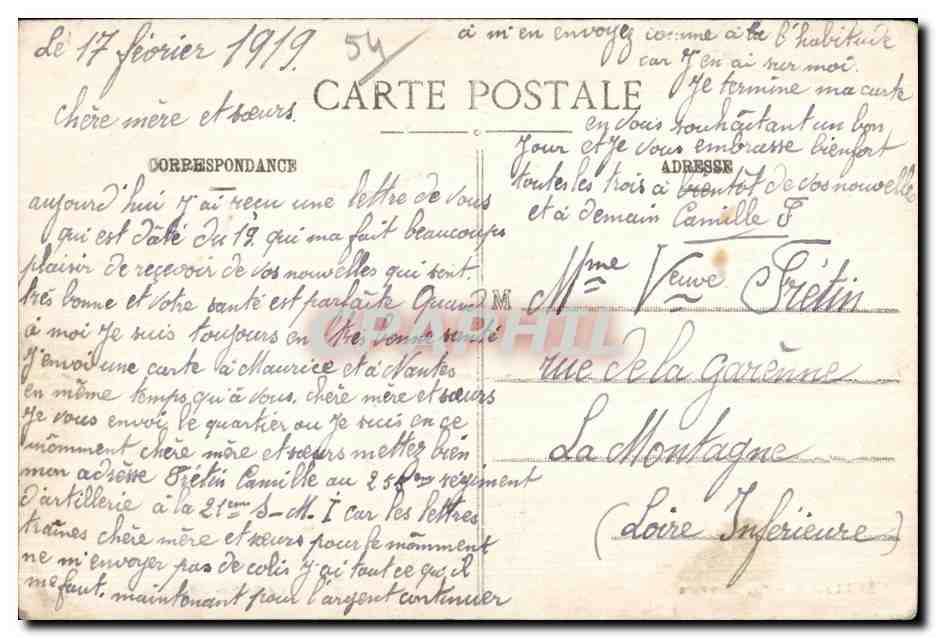 Le 17 février 1919.
54
CARTE POSTALE
chère mère et sœurs.
CORRESPONDANCE
aujourd'hui J'ai reçu une lettre de vous
qui est dâté du 19. qui ma fait beaucoups
plaisir de reçevoir de vos nouvelles qui sont
très bonne et votre santé est parfaite Quand
à moi Je suis toujours en très bonne santé
J'envoi une carte à Maurice et à Nantes
en même temps qu'à vous, chère mère et sœurs
Je vous envoi le quartier ou Je suis en ce
mômment chère mère et sœurs mettez bien
mon adrèsse Frétin Camille au régiment
d'artillerie à la 21eme S-M. I car les lettres
traînes chère mère et sœurs pour le mômment
ne m'envoyer pas de colis J'ai tout ce qu'il
me faut, maintonant pour l'argent continuer
à m'en envoyez comme à la l'habitude
car J'en ai sur moi.
Je termine ma carte
en vous souhâitant un bon
Jour et Je vous embrasse bienfort
toutes les trois à bientôt de vos nouvelle
et à demain Camille F
ADRESSE
M
Mme Veuve Frétin
rue de la Garènne
La Montagne
(Loire Inférieure)
CPAPHIL